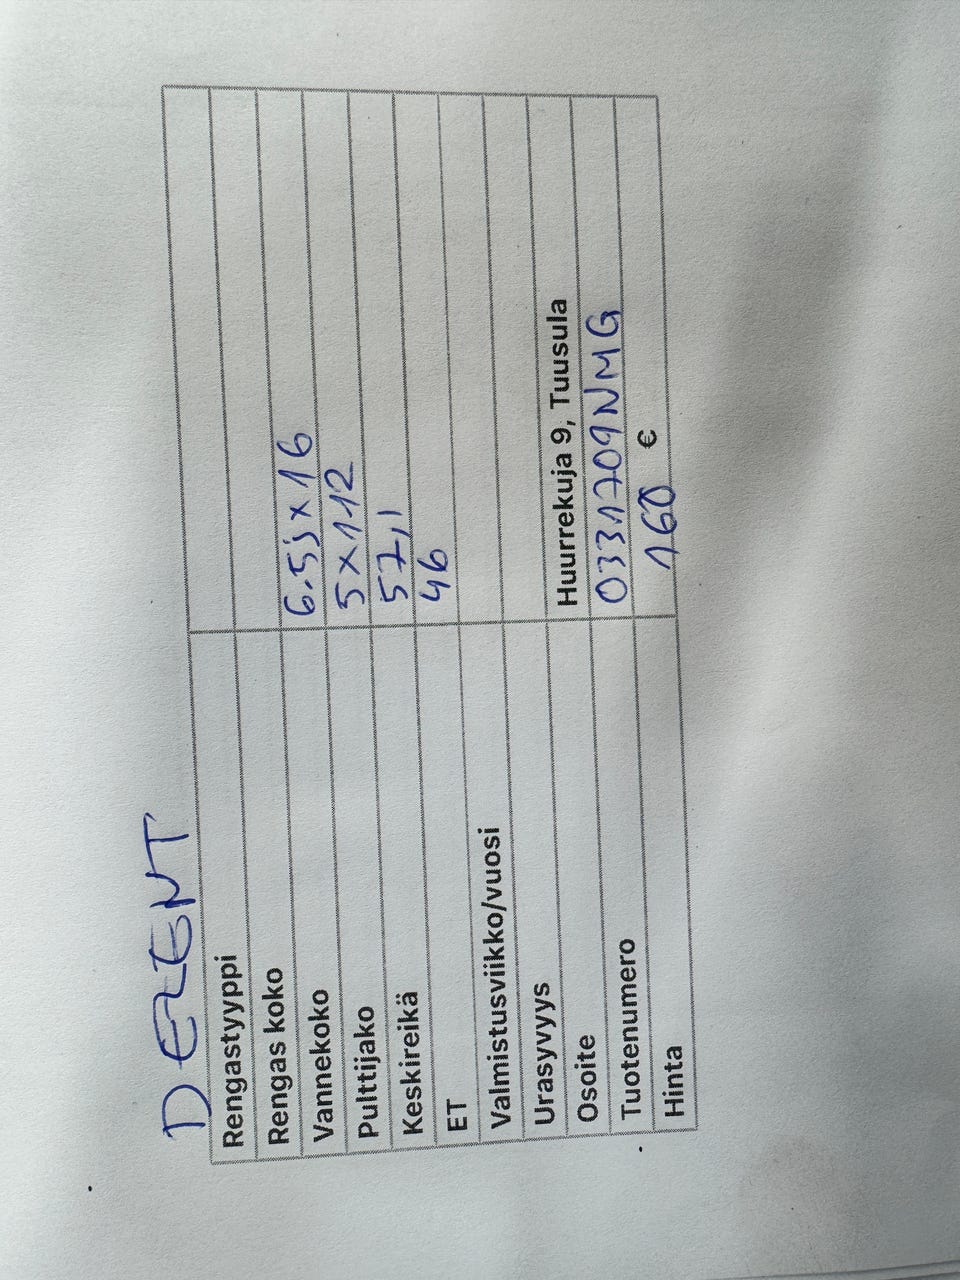 DEZENT
Rengastyyppi
Rengas koko
Vannekoko 6.5j x 16
Pulttijako 5 x 112
Keskireikä 57,1
ET 46
Valmistusviikko/vuosi
Urasyvyys
Osoite Huurrekuja 9, Tuusula
Tuotenumero 0331709NMG
Hinta 160 €